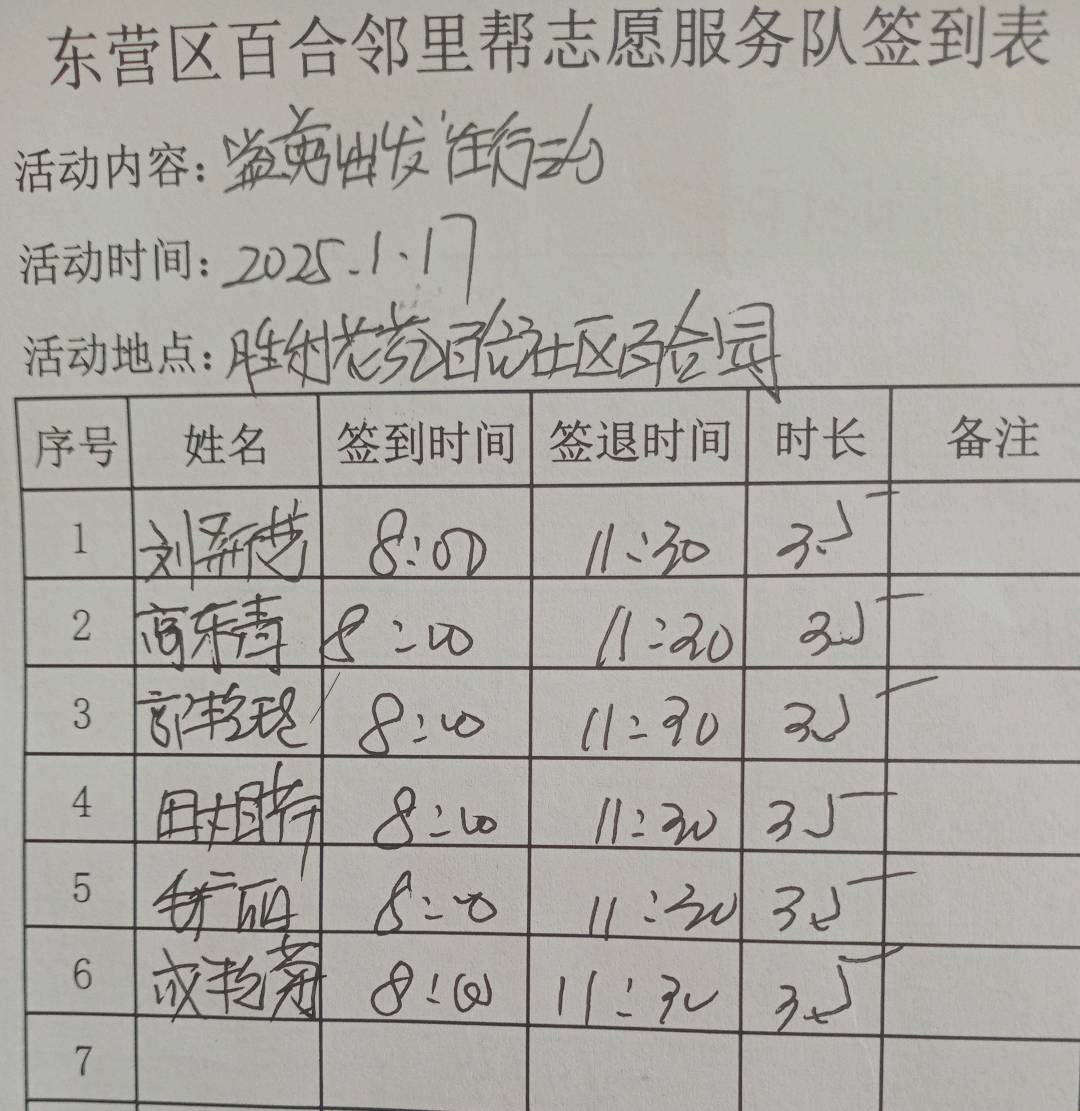 东营区百合邻里帮志愿服务队签到表
活动内容：益苑出发 在行动
活动时间：2025.1.17
活动地点：胜利花苑百合社区百合园
序号 姓名 签到时间 签退时间 时长 备注
1 刘 8:00 11:30 3.5
2 高东青 8:00 11:30 3.5
3 郭艳 8:00 11:30 3.5
4 田 8:00 11:30 3.5
5 8:00 11:30 3.5
6 成艳菊 8:00 11:30 3.5
7